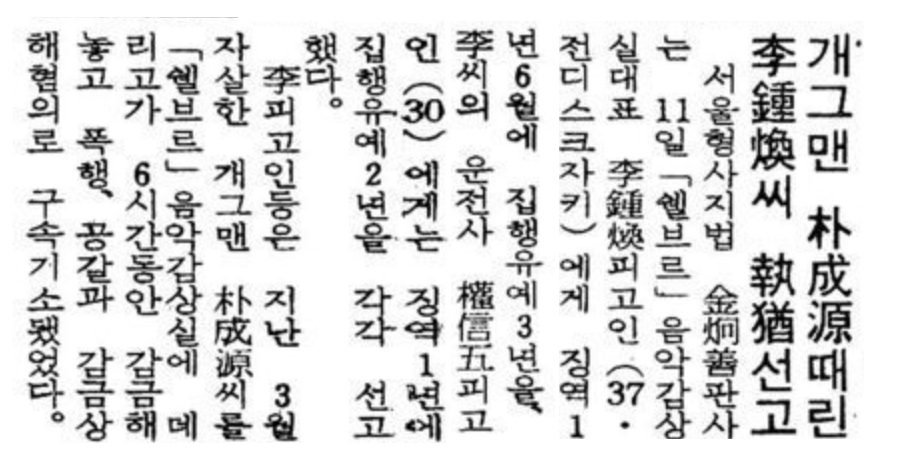 개그맨 朴成源때린
李鍾煥씨 執猶선고
서울형사지법 金炯善판사
는 11일 「쉘브르」음악감상
실대표 李鍾煥피고인(37·
전디스크자키)에게 징역1
년6월에 집행유예3년을,
李씨의 운전사 權信五피고
인(30)에게는 징역1년에
집행유예2년을 각각 선고
했다。
李피고인등은 지난 3월
자살한 개그맨 朴成源씨를
「쉘브르」음악감상실에 데
리고가 6시간동안 감금해
놓고 폭행、공갈과 감금상
해혐의로 구속기소됐었다。